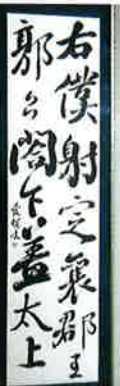 右僕射定襄郡王
郭公閤下蓋太上